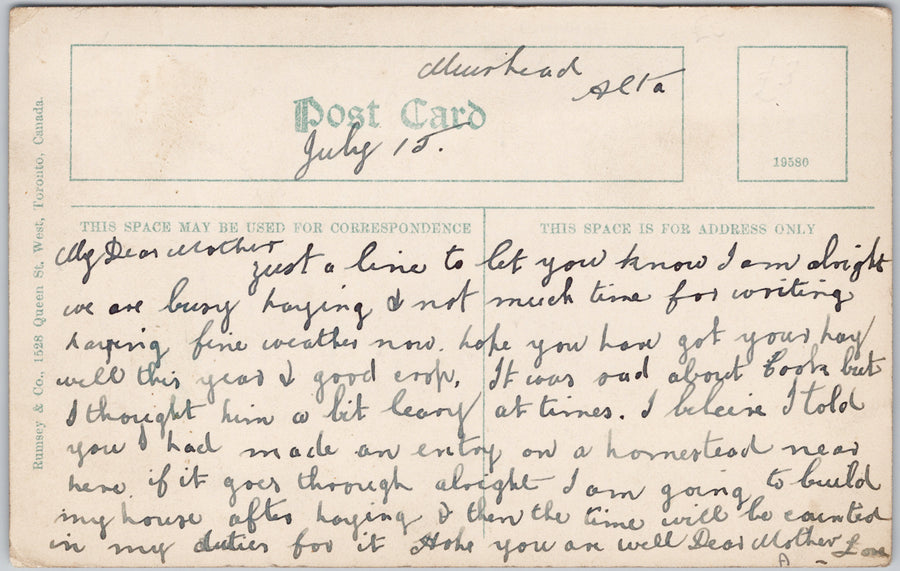 Muirhead
Alta
Post Card
July 15.
19580
Rumsey & Co., 1528 Queen St. West, Toronto, Canada.
THIS SPACE MAY BE USED FOR CORRESPONDENCE
THIS SPACE IS FOR ADDRESS ONLY
My Dear Mother
Just a line to let you know I am alright
we are busy haying & not much time for writing
having fine weather now. hope you have got your hay
well this year & good crop. It was sad about Cook but
I thought him a bit leary at times. I beleive I told
you I had made an entry on a homestead near
here if it goes through alright I am going to build
my house after haying & then the time will be counted
in my duties for it Hope you are well Dear Mother Love
A